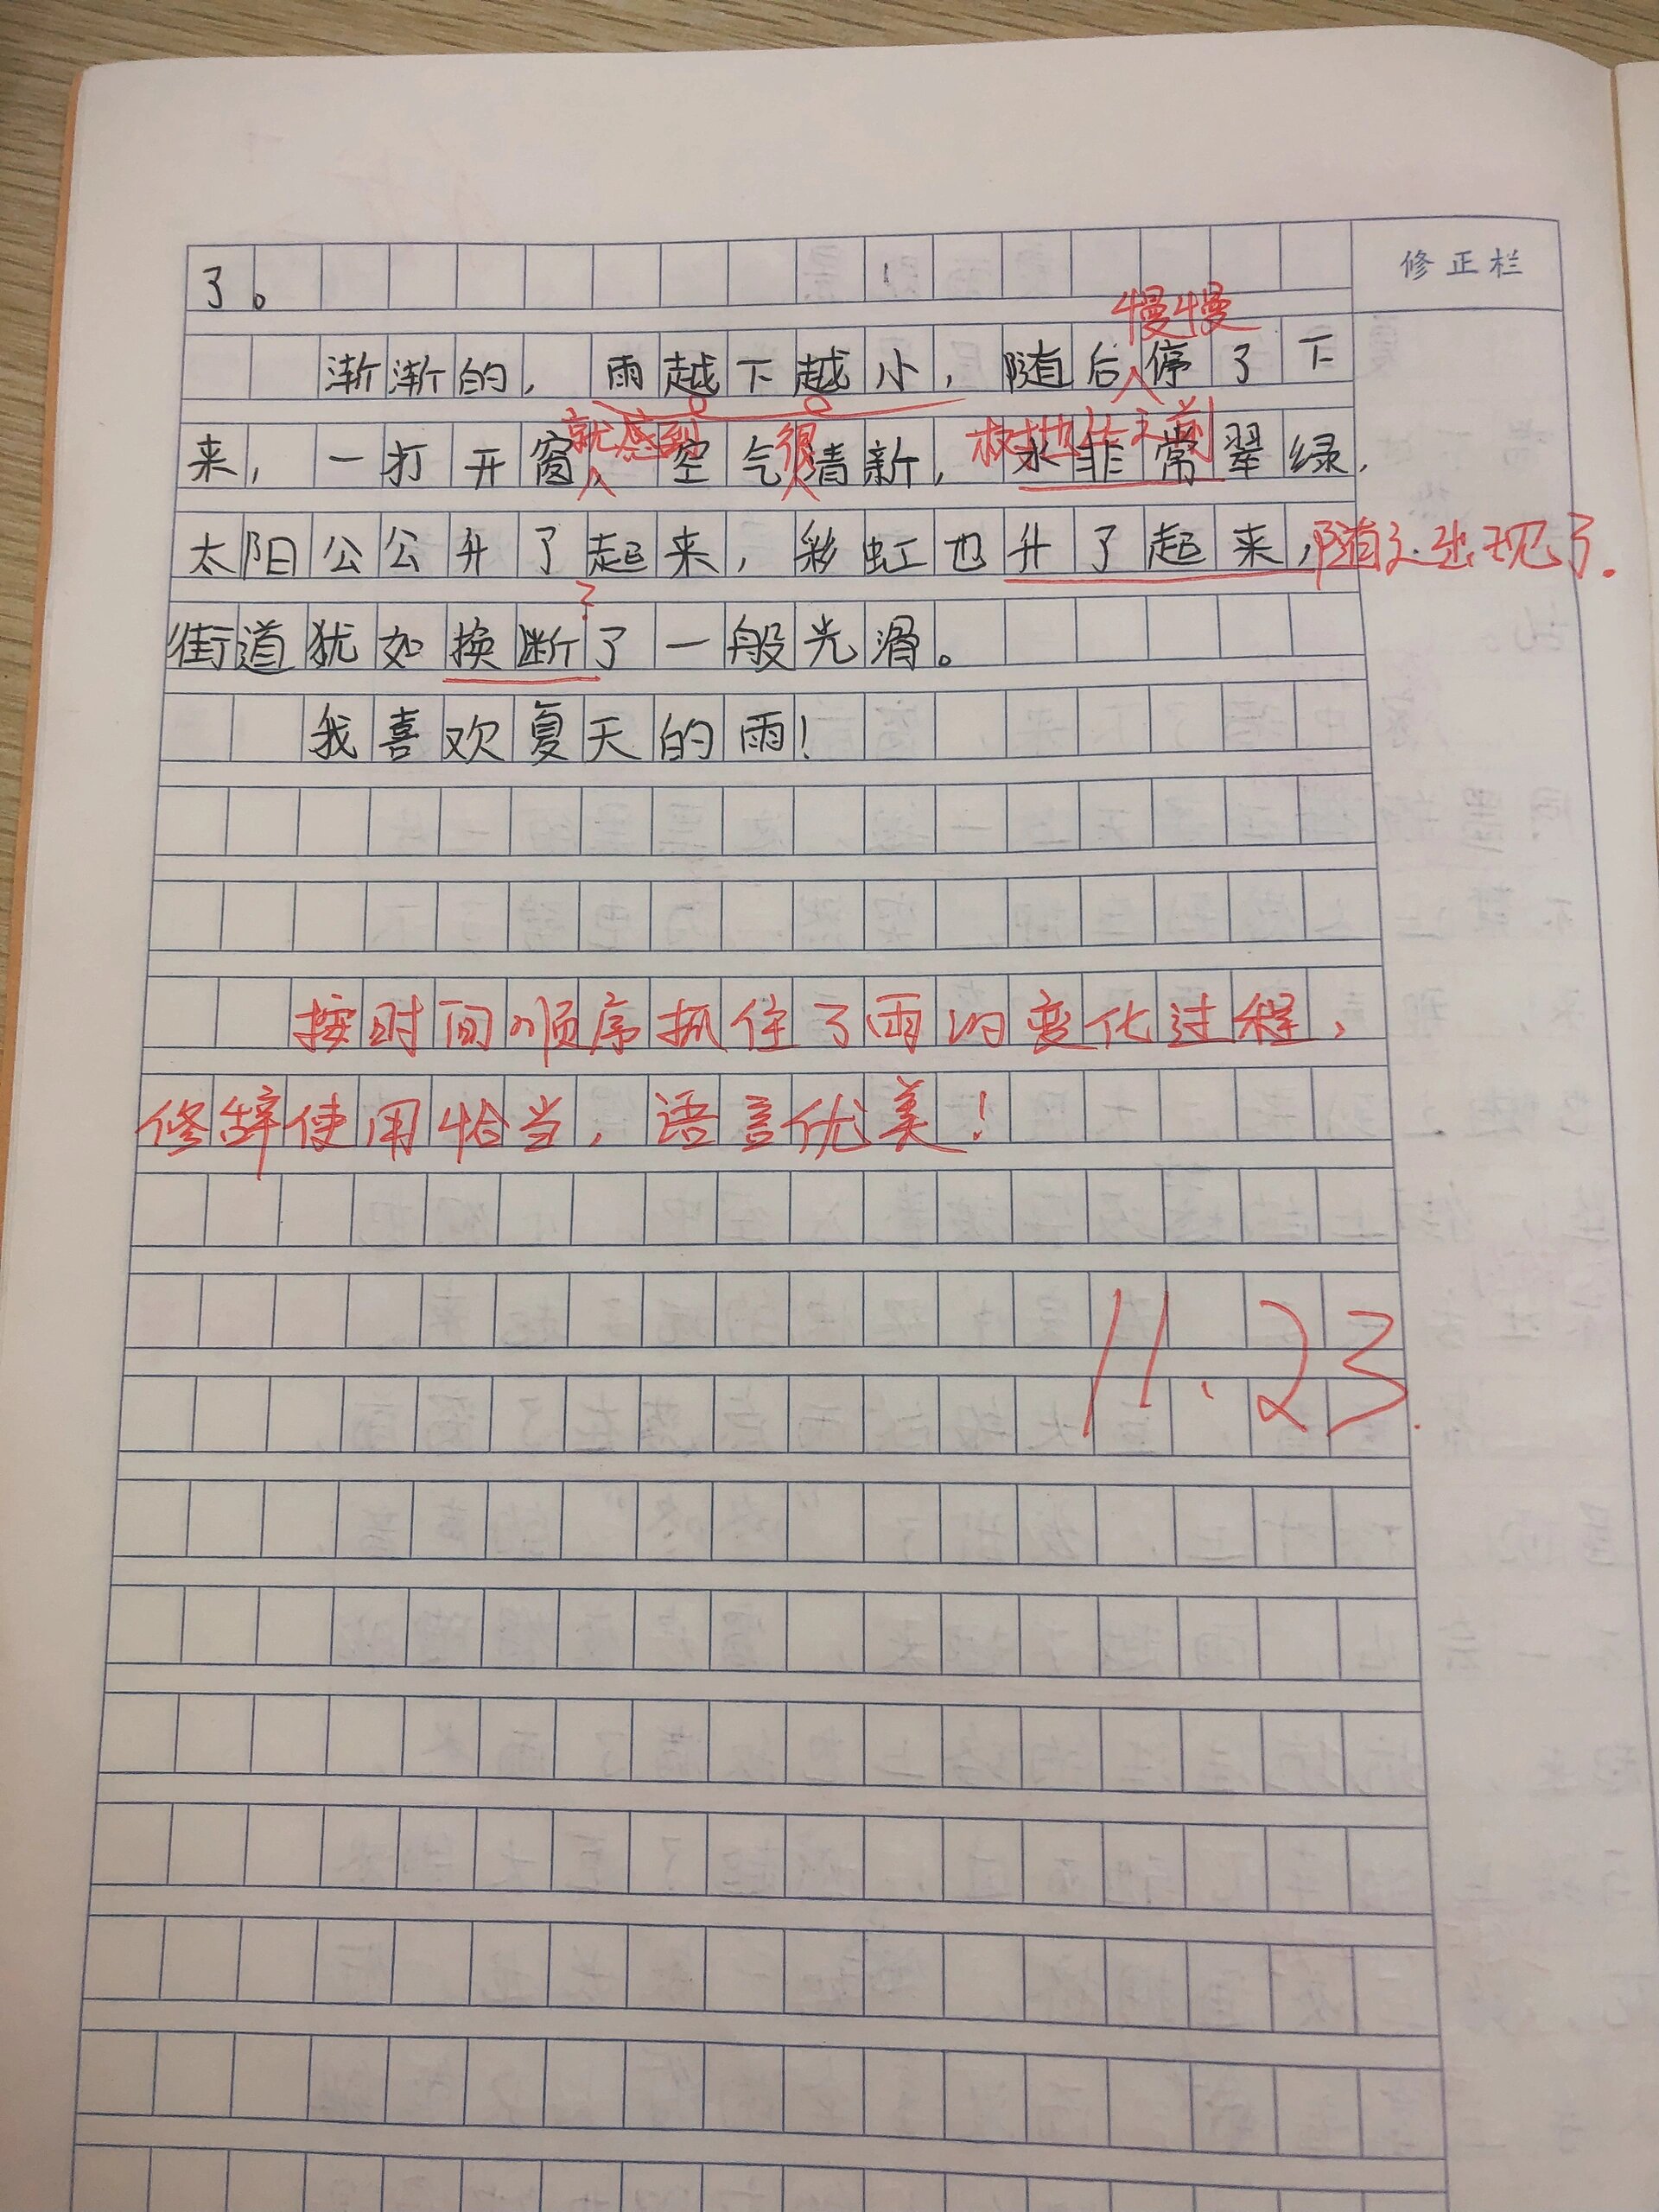 修正栏
了。
慢慢
渐渐的，雨越下越小，随后停了下
就感到 很
来，一打开窗，空气清新，水非常翠绿，
太阳公公升了起来，彩虹也升了起来，随之出现了。
?
街道犹如换断了一般光滑。
我喜欢夏天的雨！
按时间顺序抓住了雨的变化过程，
修辞使用恰当，语言优美！
11.23.